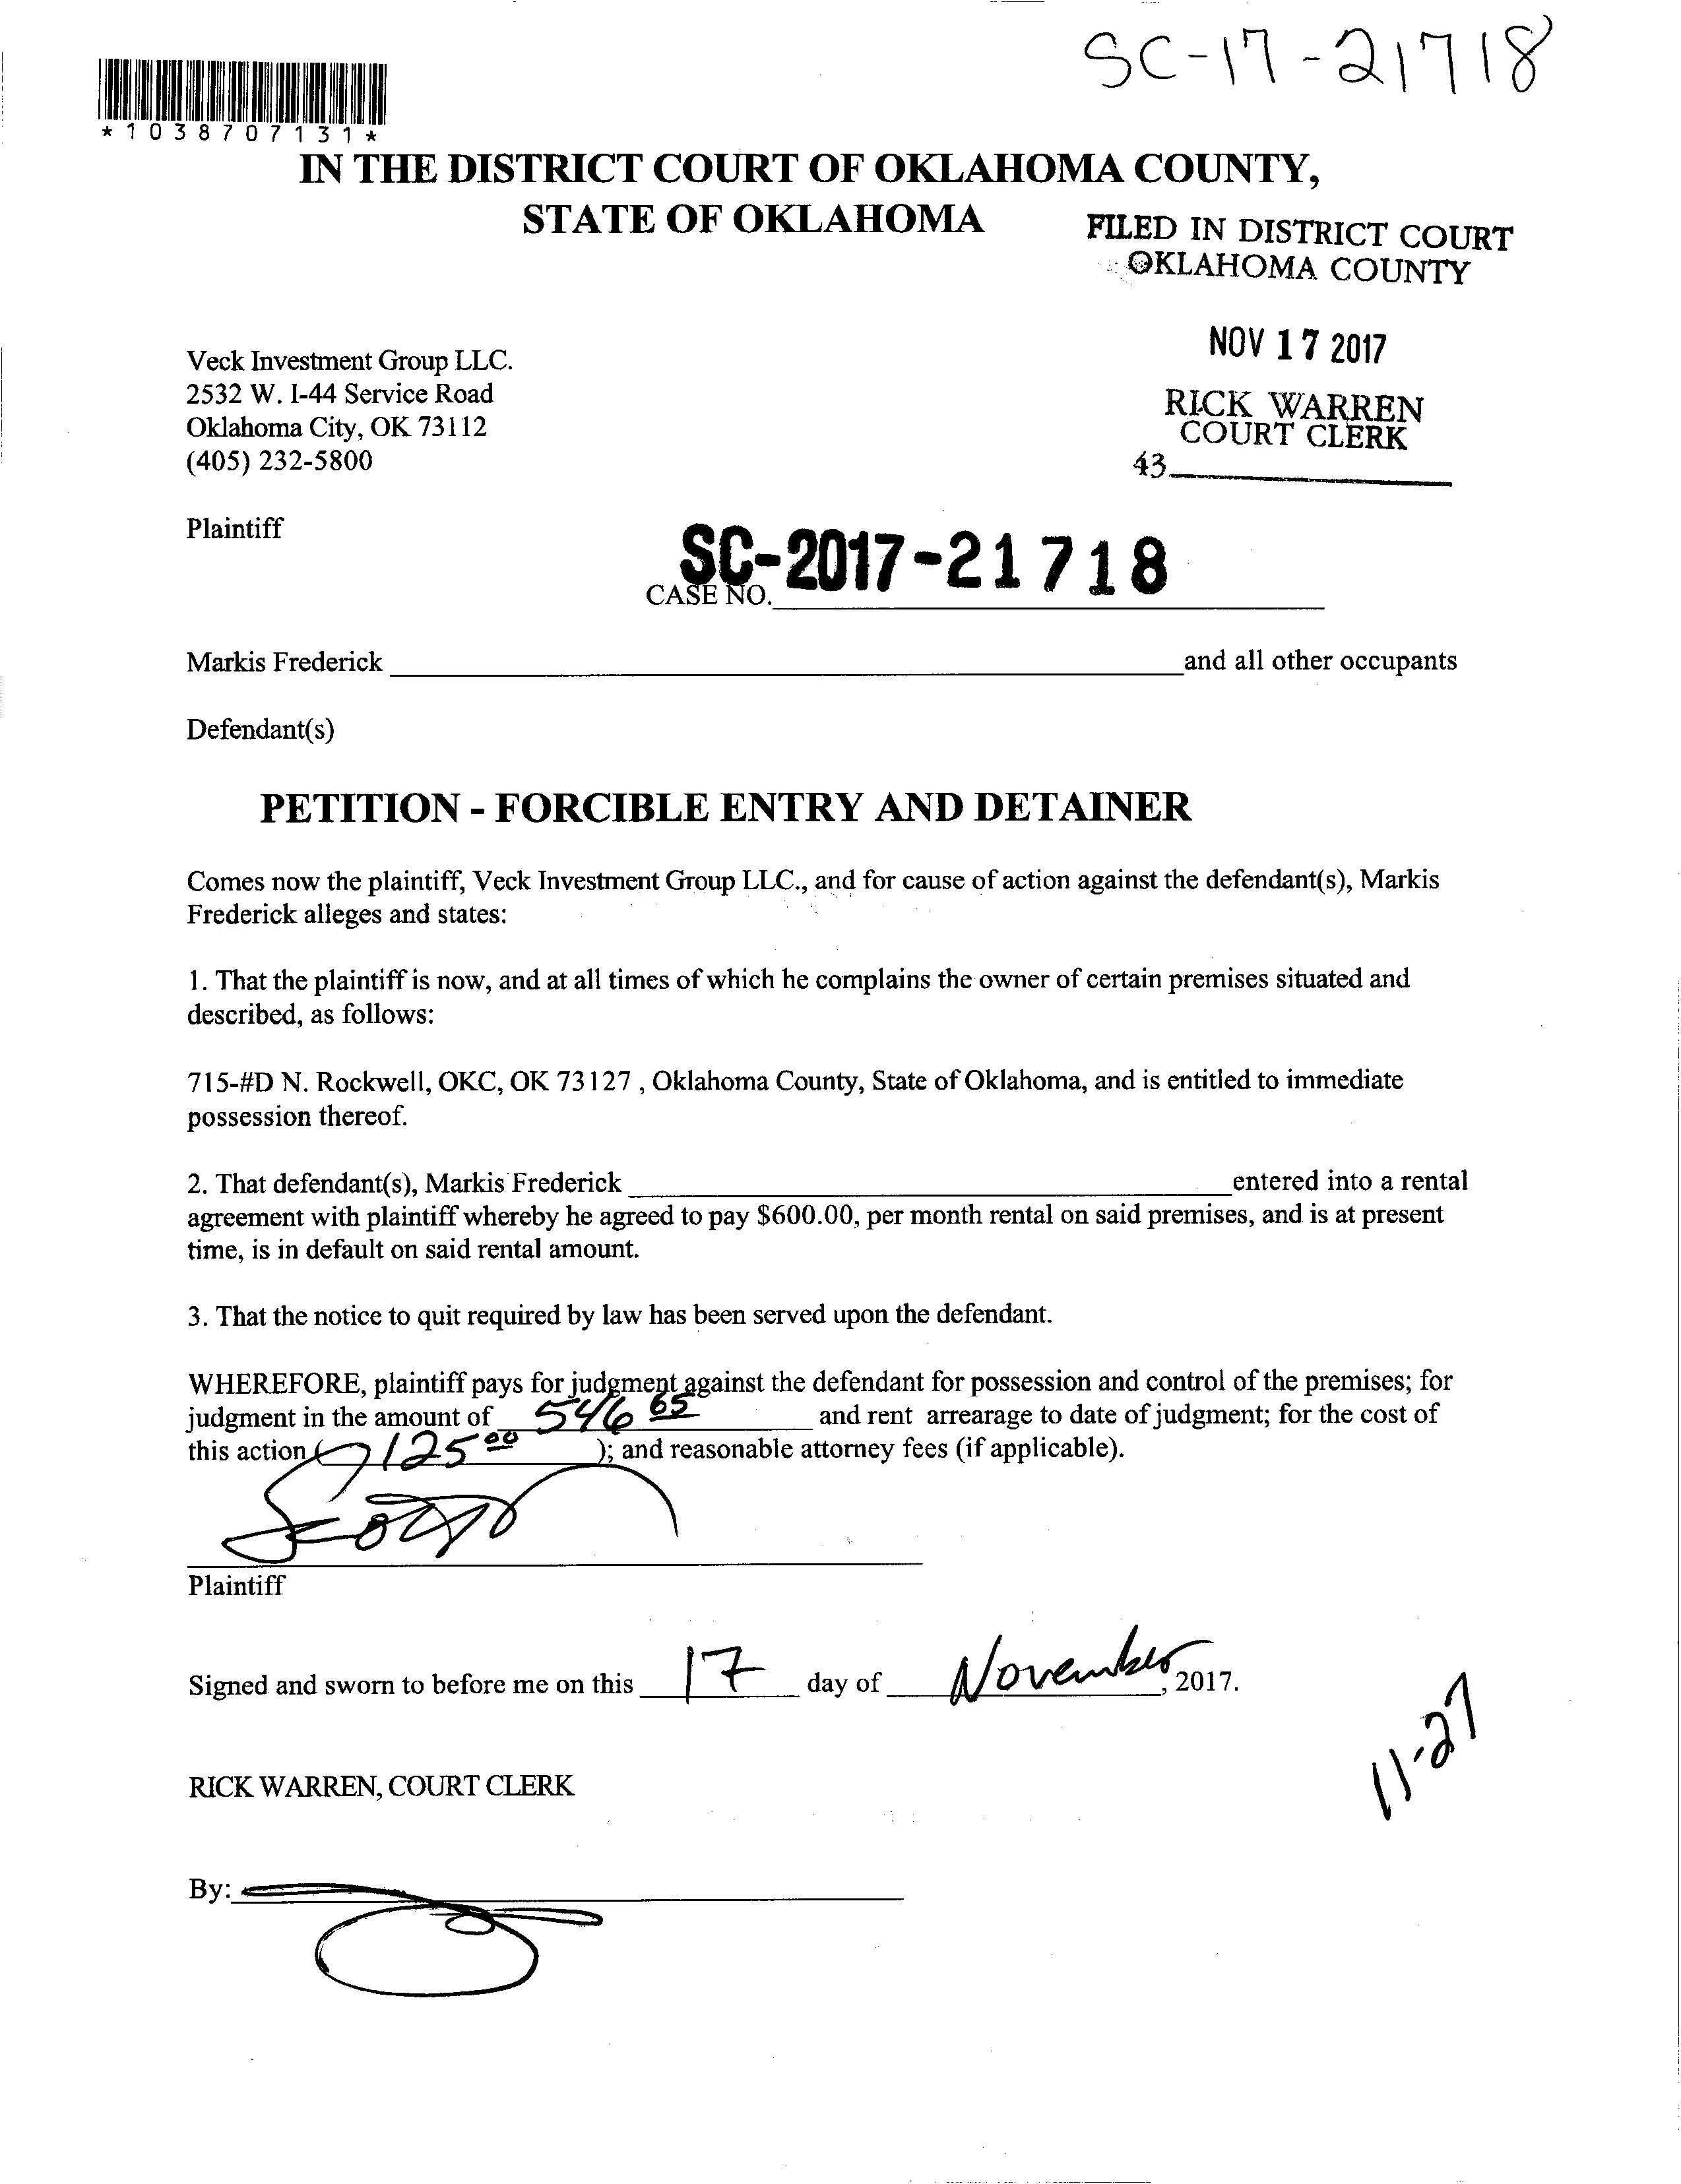 SC-17-21718
*1038707131*
IN THE DISTRICT COURT OF OKLAHOMA COUNTY,
STATE OF OKLAHOMA
FILED IN DISTRICT COURT
OKLAHOMA COUNTY
NOV 17 2017
RICK WARREN
COURT CLERK
43
Veck Investment Group LLC.
2532 W. I-44 Service Road
Oklahoma City, OK 73112
(405) 232-5800
Plaintiff
SC-2017-21718
CASE NO.
Markis Frederick and all other occupants
Defendant(s)
PETITION - FORCIBLE ENTRY AND DETAINER
Comes now the plaintiff, Veck Investment Group LLC., and for cause of action against the defendant(s), Markis
Frederick alleges and states:
1. That the plaintiff is now, and at all times of which he complains the owner of certain premises situated and
described, as follows:
715-#D N. Rockwell, OKC, OK 73127 , Oklahoma County, State of Oklahoma, and is entitled to immediate
possession thereof.
2. That defendant(s), Markis Frederick entered into a rental
agreement with plaintiff whereby he agreed to pay $600.00, per month rental on said premises, and is at present
time, is in default on said rental amount.
3. That the notice to quit required by law has been served upon the defendant.
WHEREFORE, plaintiff pays for judgment against the defendant for possession and control of the premises; for
judgment in the amount of 546 65 and rent arrearage to date of judgment; for the cost of
this action ( 125 00 ); and reasonable attorney fees (if applicable).
Plaintiff
Signed and sworn to before me on this 17 day of November, 2017.
11-27
RICK WARREN, COURT CLERK
By: